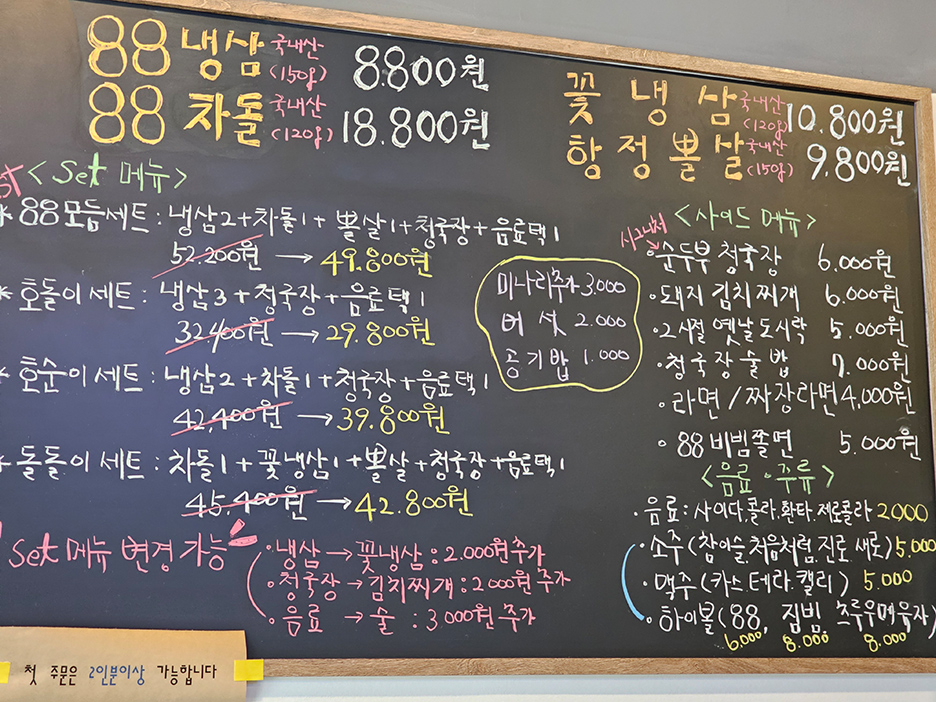 88 냉삼 국내산 (150g) 8.800원
88 차돌 국내산 (120g) 18.800원
꽃 냉 삼 국내산 (120g) 10.800원
항정뽈살 국내산 (150g) 9.800원
<Set 메뉴>
* 88모듬세트 : 냉삼2+차돌1+ 뽈살1+청국장+음료택1
52.200원 → 49.800원
* 호돌이세트 : 냉삼3+청국장+음료택1
32.400원 → 29.800원
* 호순이세트 : 냉삼2+차돌1+청국장+음료택1
42,400원 → 39.800원
* 돌돌이세트 : 차돌1+꽃냉삼1+뽈살+청국장+음료택1
45.400원 → 42.800원
Set 메뉴 변경 가능
·냉삼 → 꽃냉삼 : 2.000원추가
·청국장 → 김치찌개 : 2.000원 추가
·음료 → 술 : 3.000원 추가
미나리추가 3.000
버섯 2.000
공기밥 1.000
<사이드 메뉴>
시그니처
·순두부 청국장 6.000원
·돼지 김치찌개 6.000원
·그시절 옛날도시락 5.000원
·청국장술밥 7.000원
·라면/짜장라면 4,000원
·88비빔쫄면 5.000원
<음료·주류>
·음료 : 사이다.콜라.환타.제로콜라 2000
·소주 (참이슬,처음처럼,진로,새로) 5.000
·맥주 (카스.테라.캘리) 5.000
·하이볼 (88, 짐빔, 츠루우메유자)
6.000 8.000 8.000
첫 주문은 2인분이상 가능합니다